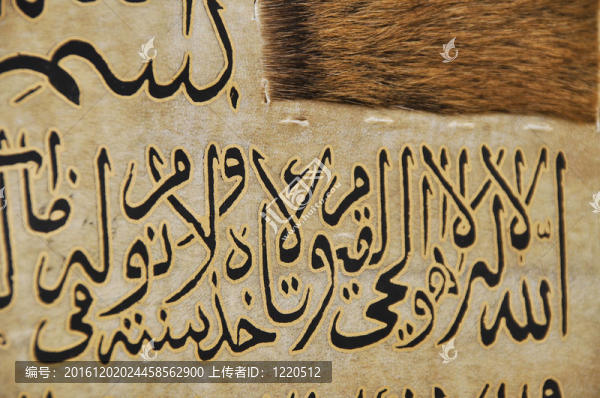 بسم
الله لا اله الا هو الحي القيوم لا تاخذه سنة ولا نوم له ما في
编号：20161202024458562900 上传者ID：1220512